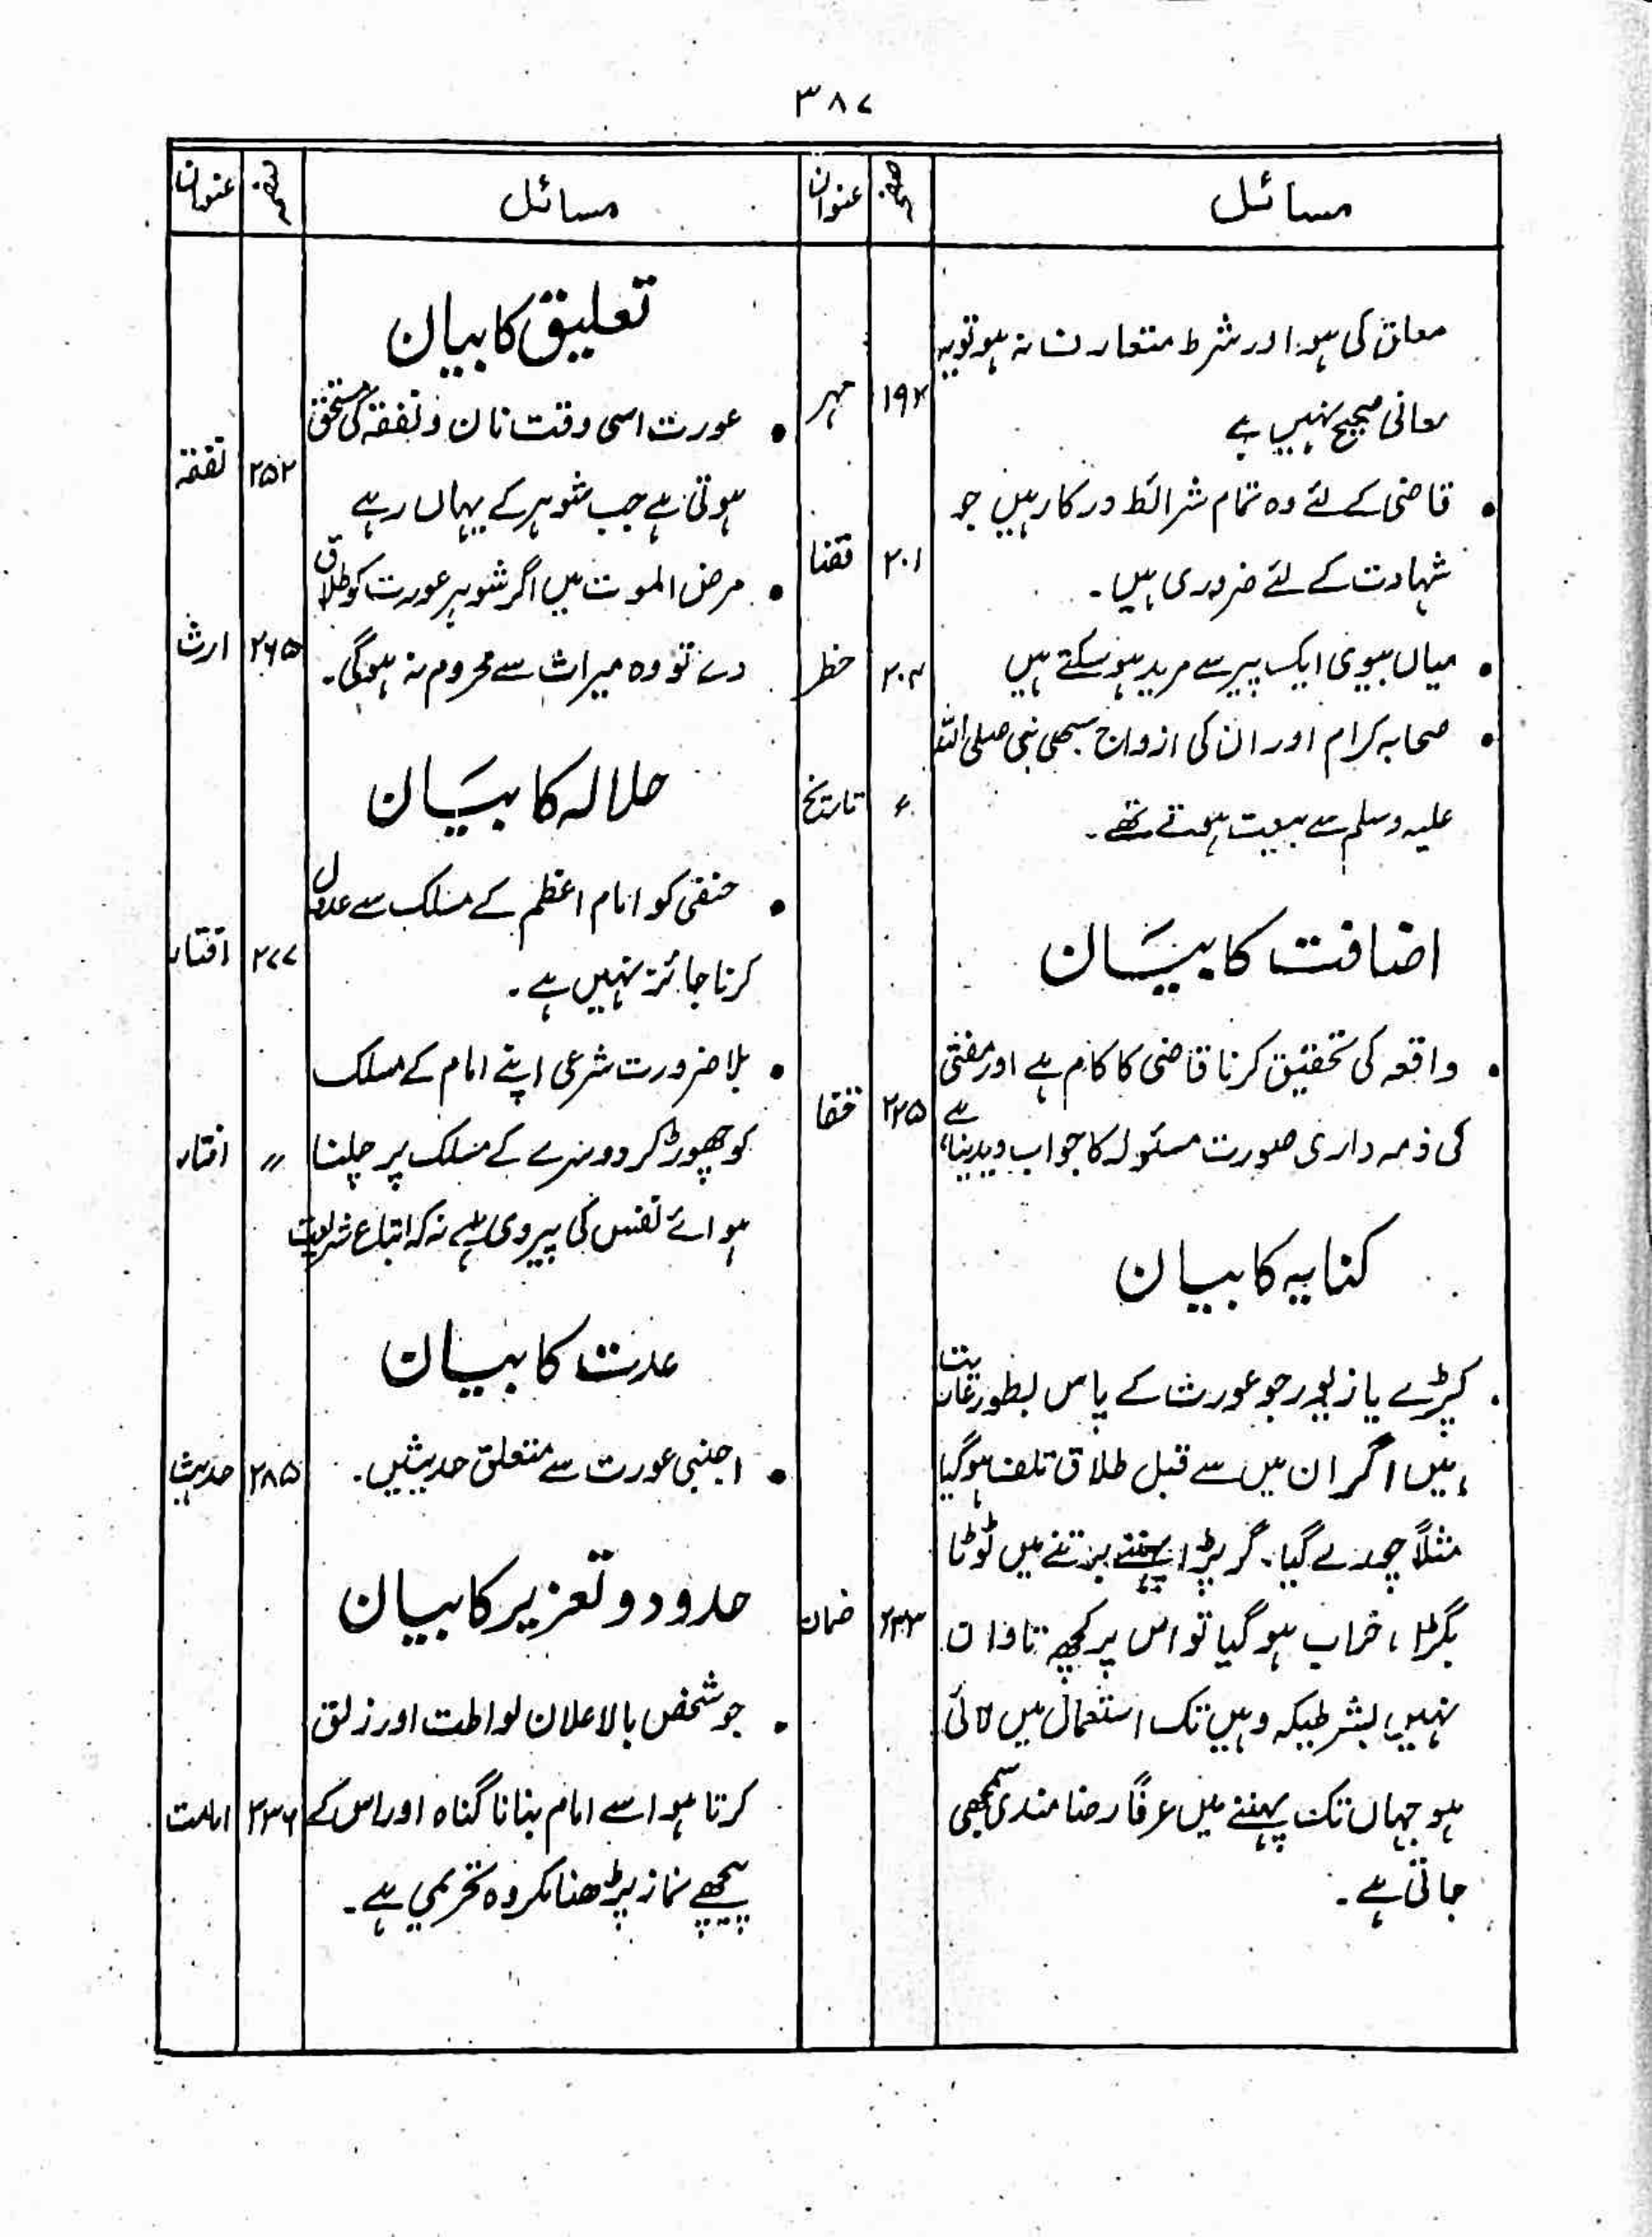 ۳۸۷
مسائل صفحہ عنوان
معلق کی ہو اور شرط متعارف نہ ہو تو یہ
معافی صحیح نہیں ہے ۱۹۲ مہر
• قاضی کے لئے وہ تمام شرائط درکار ہیں جو
شہادت کے لئے ضروری ہیں۔ ۲۰۱ قضا
• میاں بیوی ایک پیر سے مرید ہو سکتے ہیں حظر
• صحابہ کرام اور ان کی ازواج سبھی نبی صلی اللہ
علیہ وسلم سے بیعت ہوتے تھے۔ ء تاریخ
اضافت کا بیَان
• واقعہ کی تحقیق کرنا قاضی کا کام ہے اور مفتی
کی ذمہ داری صورت مسئولہ کا جواب دیدینا ہے ۲۲۵ قضا
کنایہ کا بیان
• کپڑے یا زیور جو عورت کے پاس بطور عاریت
ہیں اگر ان میں سے قبل طلاق تلف ہو گیا
مثلاً چورے گیا۔ گر پڑا پہننے برتنے میں ٹوٹا
بگڑا، خراب ہو گیا تو اس پر کچھ تاوان ۲۳۳ ضمان
نہیں بشرطیکہ وہیں تک استعمال میں لائی
ہو جہاں تک پہننے میں عرفًا رضا مندی سمجھی
جاتی ہے۔
مسائل صفحہ عنوان
تعلیق کا بیان
• عورت اسی وقت نان و نفقہ کی مستحق
ہوتی ہے جب شوہر کے یہاں رہے ۲۵۲ نفقہ
• مرض الموت میں اگر شوہر عورت کو طلاق
دے تو وہ میراث سے محروم نہ ہوگی۔ ۲۶۵ ارث
حلالہ کا بیَان
• حنفی کو امام اعظم کے مسلک سے عدول
کرنا جائز نہیں ہے۔ ۲۷۷ افتاء
• بلا ضرورت شرعی اپنے امام کے مسلک
کو چھوڑ کر دوسرے کے مسلک پر چلنا ״ افتاء
ہوائے نفس کی پیروی ہے نہ کہ اتباع شریعت
عدت کا بیان
• اجنبی عورت سے متعلق حدیثیں۔ ۲۸۵ حدیث
حدود و تعزیر کا بیان
• جو شخص بالاعلان لواطت اور زلق
کرتا ہو اسے امام بنانا گناہ اور اس کے ۳۳۶ امامت
پیچھے نماز پڑھنا مکروہ تحریمی ہے۔